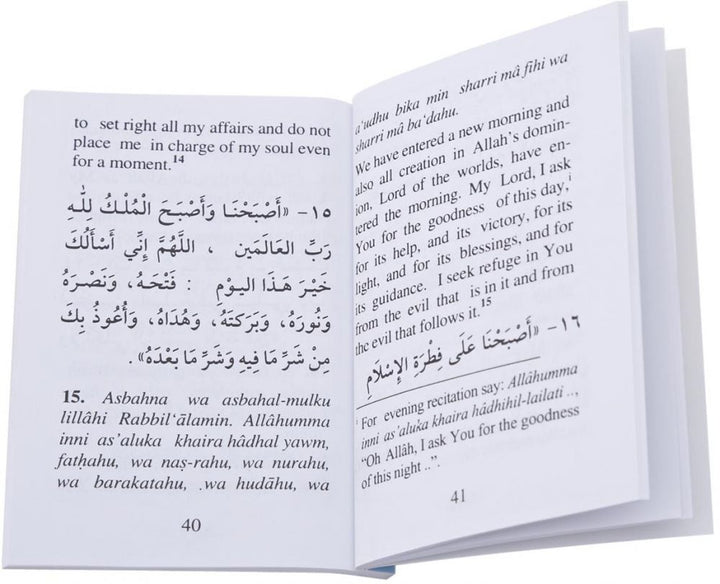 to set right all my affairs and do not
place me in charge of my soul even
for a moment.14
١٥- «أَصْبَحْنَا وَأَصْبَحَ الْمُلْكُ لِلَّهِ
رَبِّ العَالَمِين ، اللَّهُمَّ إِنِّي أَسْأَلُكَ
خَيْرَ هَذَا اليَوْمِ : فَتْحَهُ، وَنَصْرَهُ
وَنُورَهُ، وَبَرَكَتَهُ، وَهُدَاهُ، وَأَعُوذُ بِكَ
مِنْ شَرِّ مَا فِيهِ وَشَرِّ مَا بَعْدَهُ».
15. Asbahna wa asbahal-mulku
lillâhi Rabbil‘ālamin. Allâhumma
inni as’aluka khaira hâdhal yawm,
fatḥahu, wa naṣ-rahu, wa nurahu,
wa barakatahu, .wa hudāhu, wa
40
a’udhu bika min sharri mâ fīhi wa
sharri mâ ba‘dahu.
We have entered a new morning and
also all creation in Allah’s domin-
ion, Lord of the worlds, have en-
tered the morning. My Lord, I ask
You for the goodness of this day,i
for its help, and its victory, for its
light, and for its blessings, and for
its guidance. I seek refuge in You
from the evil that is in it and from
the evil that follows it.15
١٦- «أَصْبَحْنَا عَلَى فِطْرَةِ الإِسْلَامِ
i For evening recitation say: Allâhumma
inni as’aluka khaira hâdhihil-lailati ..,
“Oh Allâh, I ask You for the goodness
of this night ..”.
41